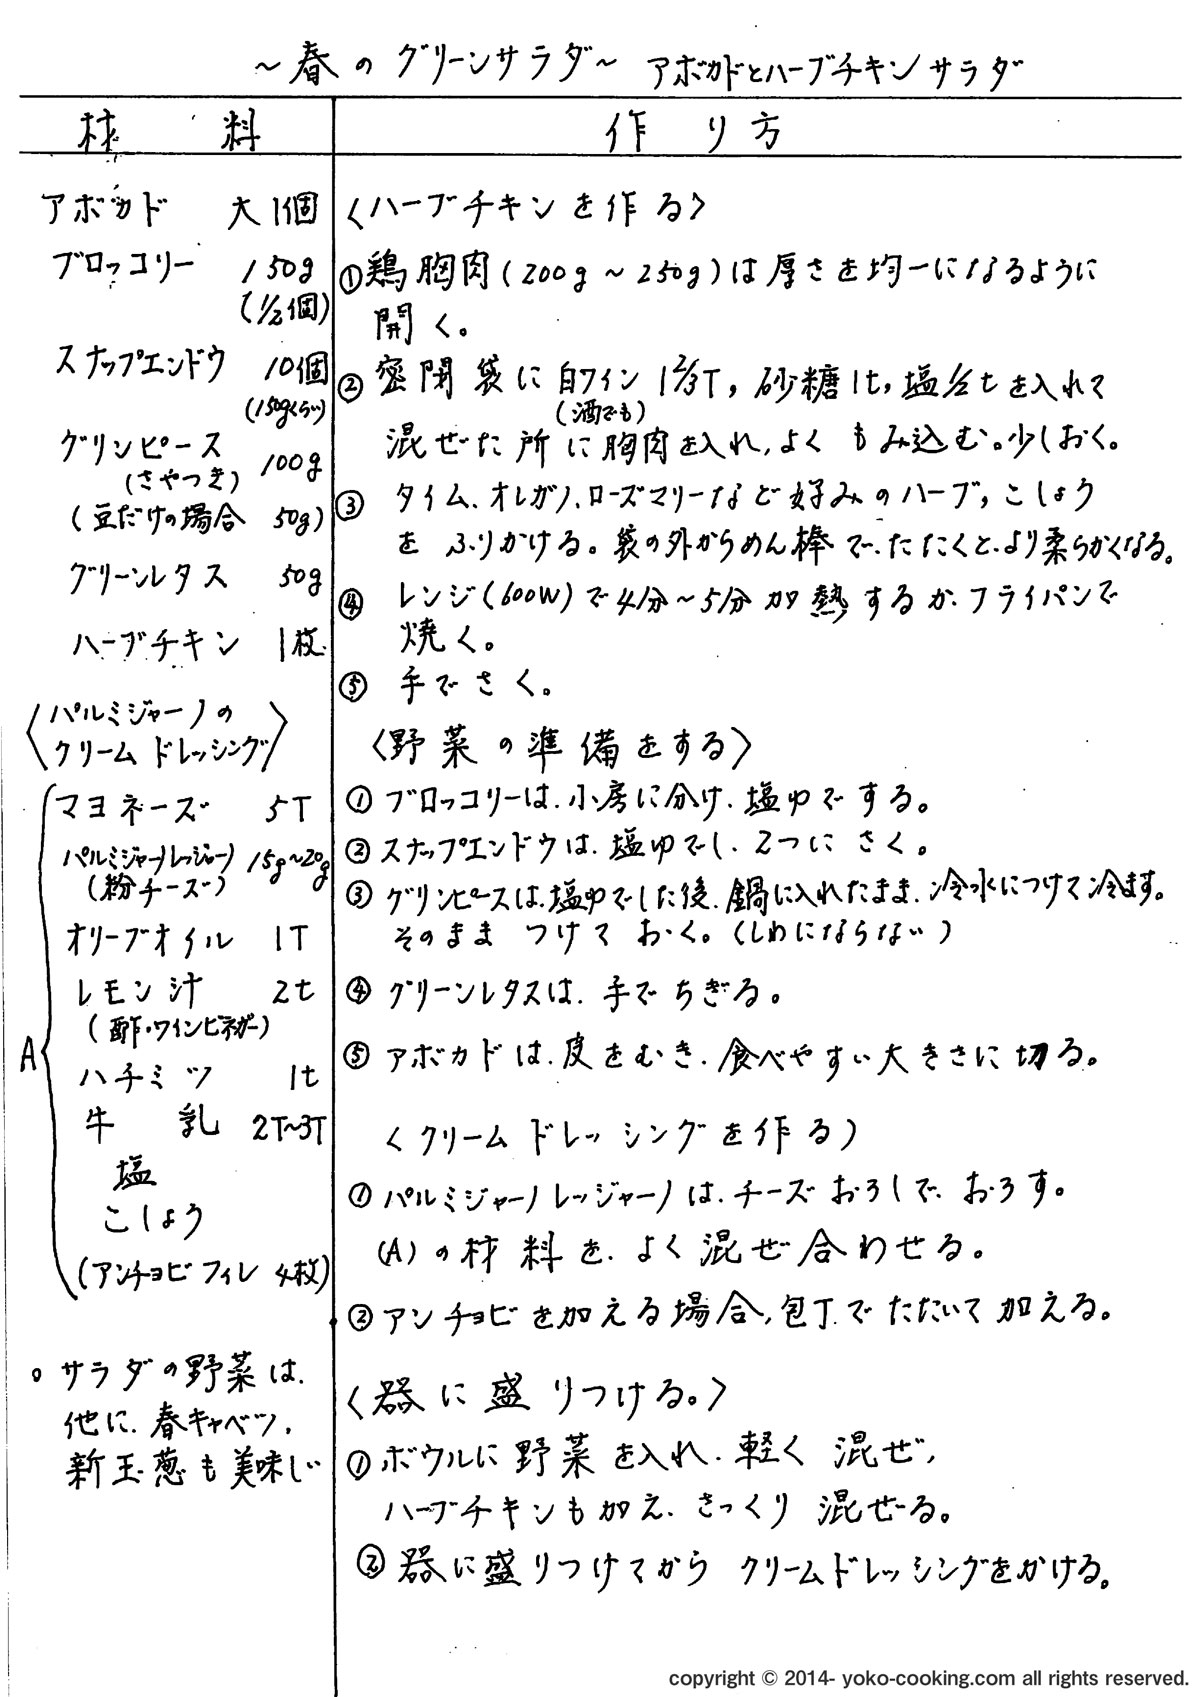 ～春のグリーンサラダ～ アボカドとハーブチキンサラダ
材料
作り方
アボカド 大1個
ブロッコリー 150g
(1/2個)
スナップエンドウ 10個
(150gくらい)
グリンピース
(さやつき) 100g
(豆だけの場合 50g)
グリーンレタス 50g
ハーブチキン 1枚
〈パルミジャーノの
クリームドレッシング〉
A
マヨネーズ 5T
パルミジャーノレッジャーノ 15g～20g
(粉チーズ)
オリーブオイル 1T
レモン汁 2t
(酢・ワインビネガー)
ハチミツ 1t
牛乳 2T～3T
塩
こしょう
(アンチョビフィレ 4枚)
○サラダの野菜は、
他に、春キャベツ、
新玉葱も美味しい
〈ハーブチキンを作る〉
①鶏胸肉(200g～250g)は厚さを均一になるように
開く。
②密閉袋に白ワイン1 2/3T, 砂糖1t, 塩1/2tを入れて
(酒でも)
混ぜた所に胸肉を入れ、よくもみ込む。少しおく。
③タイム、オレガノ、ローズマリーなど好みのハーブ, こしょう
をふりかける。袋の外からめん棒で、たたくと、より柔らかくなる。
④レンジ(600W)で4分～5分加熱するか、フライパンで
焼く。
⑤手でさく。
〈野菜の準備をする〉
①ブロッコリーは、小房に分け、塩ゆでする。
②スナップエンドウは、塩ゆでし、2つにさく。
③グリンピースは、塩ゆでした後、鍋に入れたまま、冷水につけて冷ます。
そのままつけておく。(しわにならない)
④グリーンレタスは、手でちぎる。
⑤アボカドは、皮をむき、食べやすい大きさに切る。
〈クリームドレッシングを作る〉
①パルミジャーノレッジャーノは、チーズおろしで、おろす。
(A)の材料を、よく混ぜ合わせる。
②アンチョビを加える場合、包丁でたたいて加える。
〈器に盛りつける。〉
①ボウルに野菜を入れ、軽く混ぜ、
ハーブチキンも加え、さっくり混ぜる。
②器に盛りつけてからクリームドレッシングをかける。
copyright © 2014- yoko-cooking.com all rights reserved.